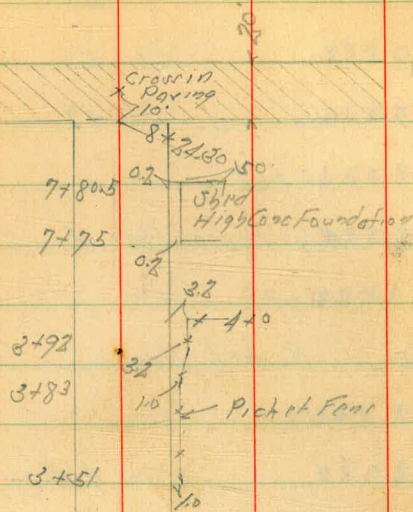 20'
Cross in
Paving
10'
8+24.30
0.2
50
7+80.5
Shed
High Conc Foundation
7+75
0.2
3.2
4+0
3+92
3.2
3+83
1.0
Picket Fenc
3+51
1.0